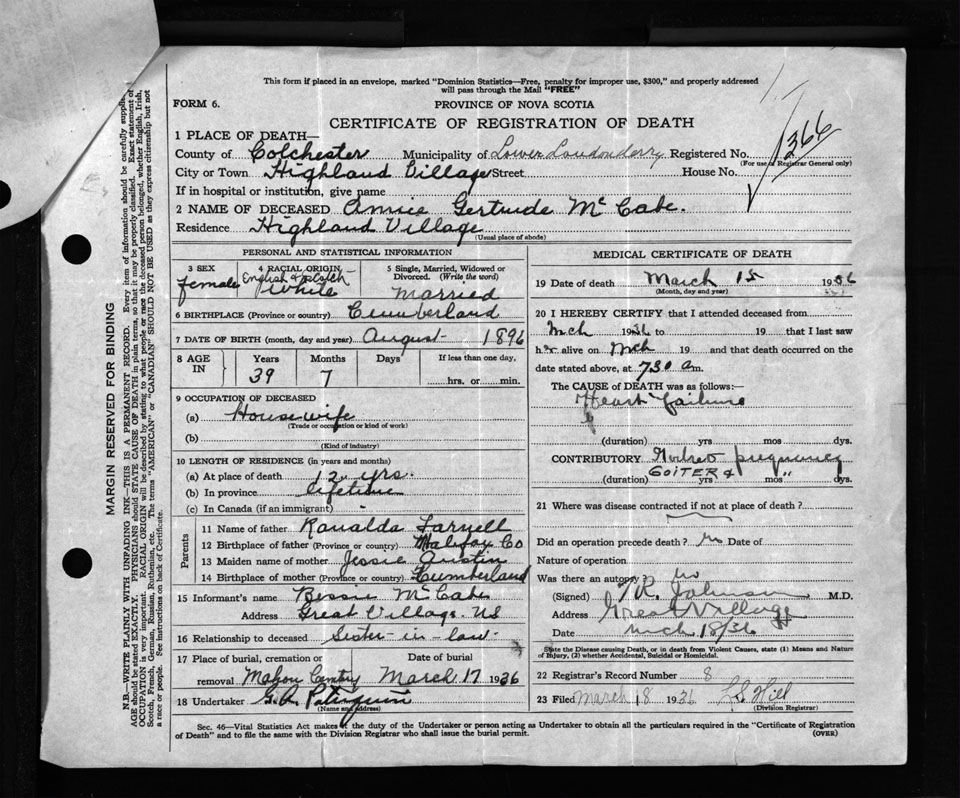 This form if placed in an envelope, marked "Dominion Statistics—Free, penalty for improper use, $300," and properly addressed
will pass through the Mail "FREE"
FORM 6.
PROVINCE OF NOVA SCOTIA
CERTIFICATE OF REGISTRATION OF DEATH
1366
1 PLACE OF DEATH—
County of Colchester Municipality of Lower Londonderry Registered No.
(For use of Registrar General only)
City or Town Highland Village Street House No.
If in hospital or institution, give name
2 NAME OF DECEASED Annie Gertrude McCabe.
Residence Highland Village
(Usual place of abode)
PERSONAL AND STATISTICAL INFORMATION
3 SEX
female
4 RACIAL ORIGIN
English & Scotch
White
5 Single, Married, Widowed or Divorced. (Write the word)
Married
6 BIRTHPLACE (Province or country) Cumberland
7 DATE OF BIRTH (month, day and year) August 1896
8 AGE IN Years Months Days If less than one day,
39 7 hrs. or min.
9 OCCUPATION OF DECEASED
(a) Housewife
(Trade or occupation or kind of work)
(b)
(Kind of industry)
10 LENGTH OF RESIDENCE (in years and months)
(a) At place of death 12 yrs.
(b) In province lifetime
(c) In Canada (if an immigrant)
Parents
11 Name of father Ronalda Farnell
12 Birthplace of father (Province or country) Halifax Co
13 Maiden name of mother Jessie Austin
14 Birthplace of mother (Province or country) Cumberland
15 Informant's name Bessie McCabe
Address Great Village. NS
16 Relationship to deceased Sister-in-law
17 Place of burial, cremation or removal Date of burial
Mahon Cemetry March 17 1936
18 Undertaker G.A.
(Name and address)
MEDICAL CERTIFICATE OF DEATH
19 Date of death March 15 1936
(Month, day and year)
20 I HEREBY CERTIFY that I attended deceased from
Mch 1936 to 19 that I last saw
her alive on Mch 19 and that death occurred on the
date stated above, at 7.30 a.m.
The CAUSE OF DEATH was as follows:—
Heart failure
(duration) yrs mos dys.
CONTRIBUTORY pregnancy
GOITER & "
(duration) yrs mos dys.
21 Where was disease contracted if not at place of death?
Did an operation precede death? no Date of
Nature of operation
Was there an autopsy? no
(Signed) T.R. Johnson M.D.
Address Great Village
Date Mch 18/36
State the Disease causing Death, or in death from Violent Causes, state (1) Means and Nature
of Injury, (2) whether Accidental, Suicidal or Homicidal.
22 Registrar's Record Number 8
23 Filed March 18 1936 Hill
(Division Registrar)
Sec. 46—Vital Statistics Act makes it the duty of the Undertaker or person acting as Undertaker to obtain all the particulars required in the "Certificate of Registration
of Death" and to file the same with the Division Registrar who shall issue the burial permit.
(OVER)
MARGIN RESERVED FOR BINDING
N.B.—WRITE PLAINLY WITH UNFADING INK—THIS IS A PERMANENT RECORD. Every item of information should be carefully supplied.
AGE should be stated EXACTLY. PHYSICIANS should STATE CAUSE OF DEATH in plain terms, so that it may be properly classified. Exact statement of
OCCUPATION is very important. RACIAL ORIGIN will be described by stating to what people or race the deceased person belonged, whether English, Irish,
Scotch, French, German, Russian, Ruthenian, etc. The terms "AMERICAN" or "CANADIAN" SHOULD NOT BE USED as they express citizenship but not
a race or people. See instructions on back of Certificate.